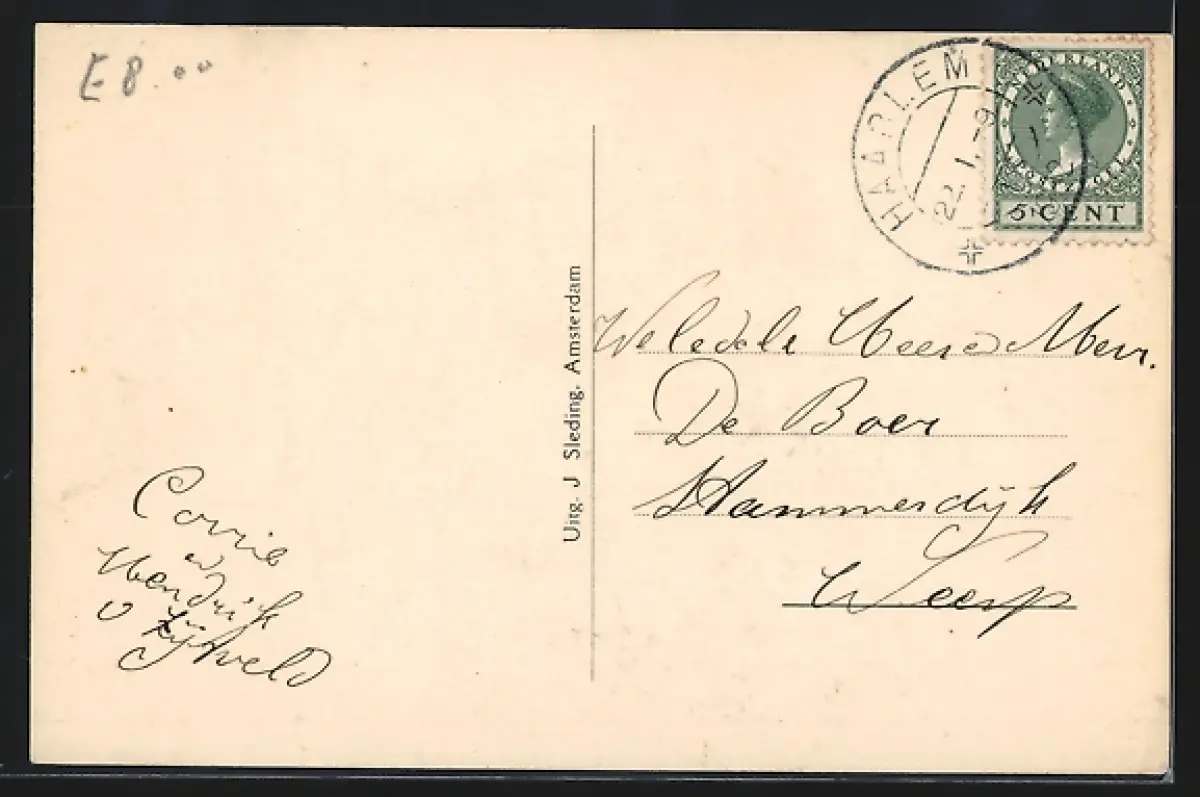 E 8.00
HAARLEM
22 1.-9
NEDERLAND
POSTZEGEL
5 CENT
Uitg. J Sleding. Amsterdam
Weledele Heer en Mevr.
De Boer
Hammerdijk
Weesp
Corrie
en
Hendrik
v Zijtveld